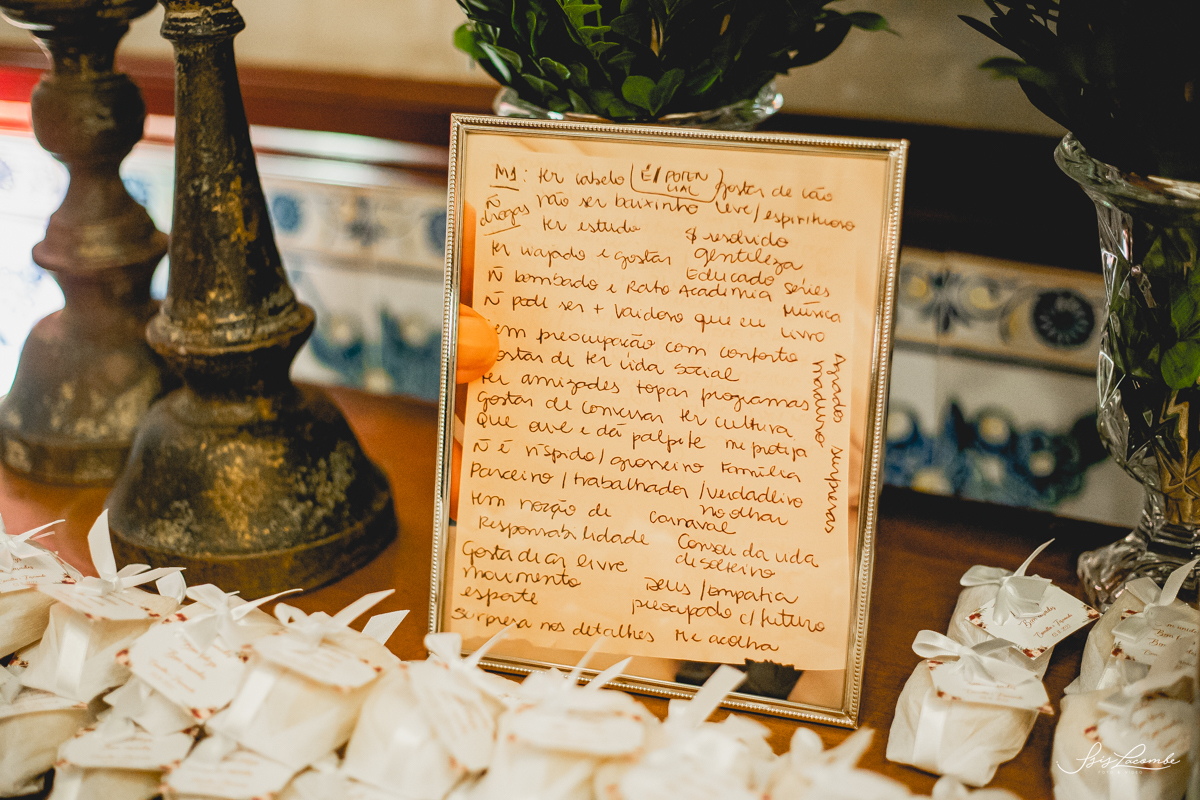 M1: ter cabelo (É/POTEN
CIAL) gostar de cão
Ñ não ser baixinho leve/espirituoso
drogas ter estudo $ resolvido
ter viajado e gostar gentileza
Ñ bombado e Rato Academia Educado séries
Ñ pode ser + Vaidoso que eu música
livro
em preocupação com conforto
ostar de ter vida social
ter amizades topar programas
Gostar de conversar ter cultura
que ouve e dá palpite me proteja
Ñ é ríspido/grosseiro Família
Parceiro/trabalhador/verdadeiro
no olhar
tem noção de carnaval
Responsabilidade Cansou da vida
de solteiro
Gosta de ar livre
movimento Deus/empatia
esporte preocupado c/ futuro
surpresa nos detalhes Me acolha
maduro
surpresas
Lacombe